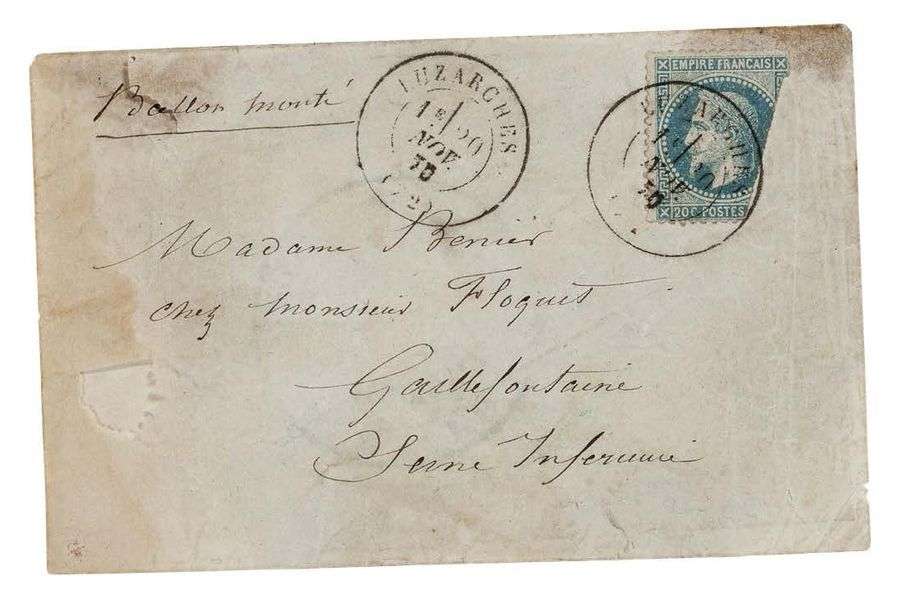 Ballon monté
LUZARCHES
1E
20
NOV.
70
(72)
EMPIRE FRANCAIS
20c POSTES
LUZARCHES
20
NOV.
70
Madame Bénier
chez monsieur Floquet
Gaillefontaine
Seine Inferieure